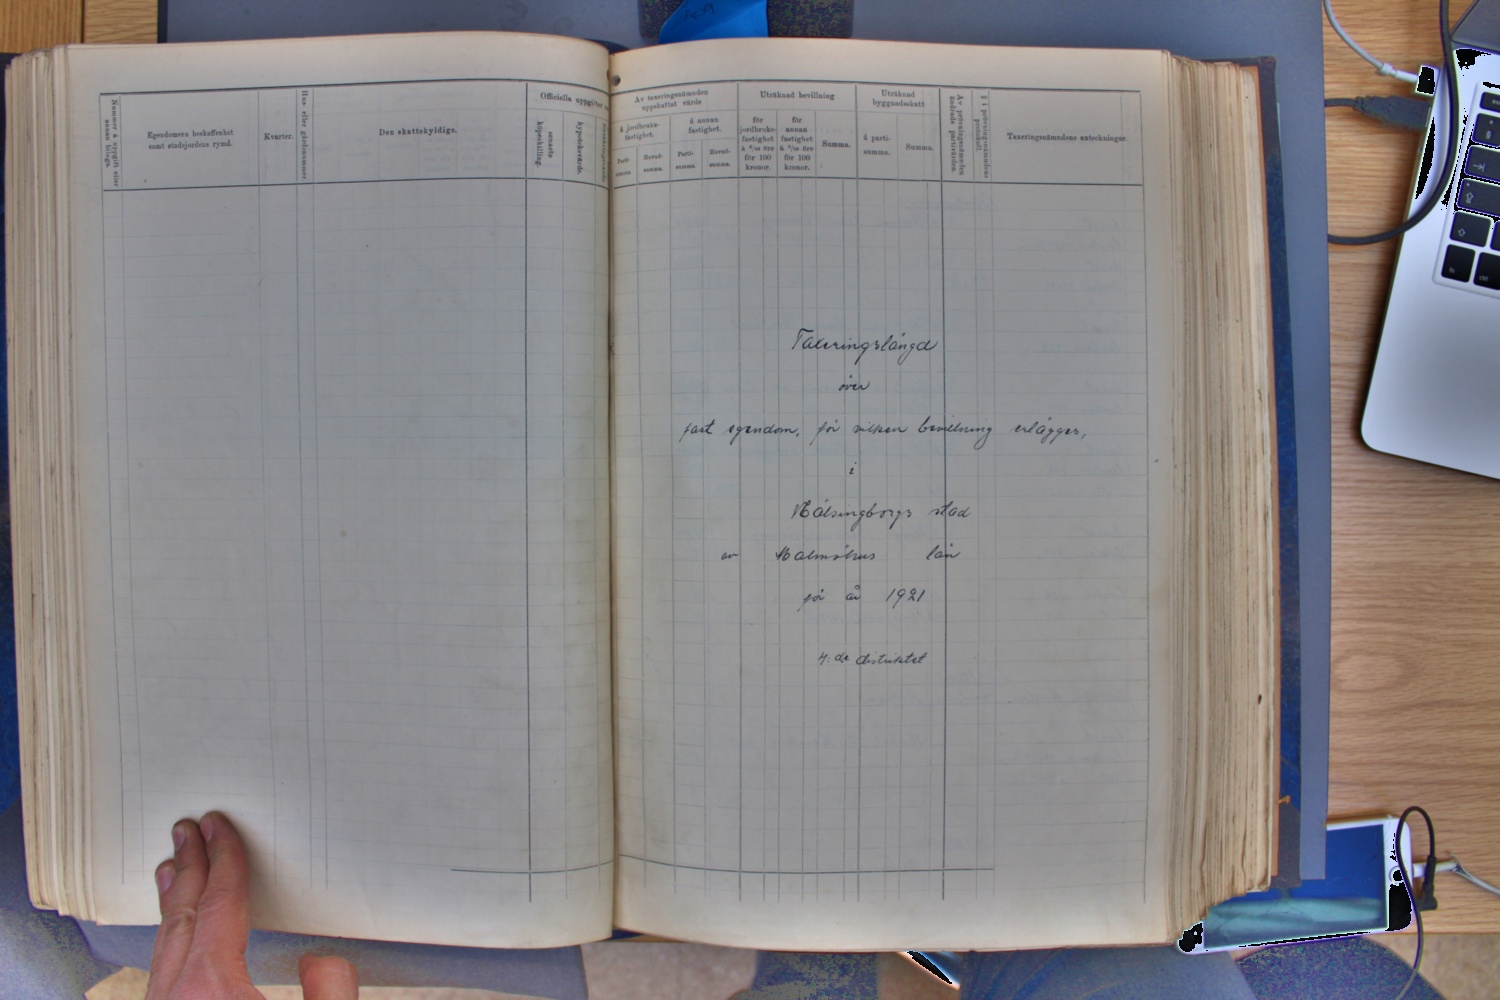 Nummer å uppgift eller annat tings.
Egendomens beskaffenhet samt stadsjordens rymd.
Kvarter.
Hus- eller gårdsnummer.
Den skattskyldige.
Officiella uppgifter
senaste köpeskilling.
hypoteksvärde.
Av taxeringsnämnden uppskattat värde
å jordbruksfastighet.
å annan fastighet.
Partisumma
Huvudsumma.
Partisumma.
Huvudsumma.
Uträknad bevillning
för jordbruksfastighet à 6/10 öre för 100 kronor.
för annan fastighet à 5/10 öre för 100 kronor.
Summa.
Uträknad byggnadsskatt
å partisumma.
Summa.
Av prövningsnämnden ändrade partivärden.
§ i prövningsnämndens protokoll.
Taxeringsnämndens anteckningar.
Taxeringslängd
över
fast egendom, för vilken bevillning erlägges,
i
Hälsingborgs stad
av Malmöhus län
för år 1921
4:de distriktet